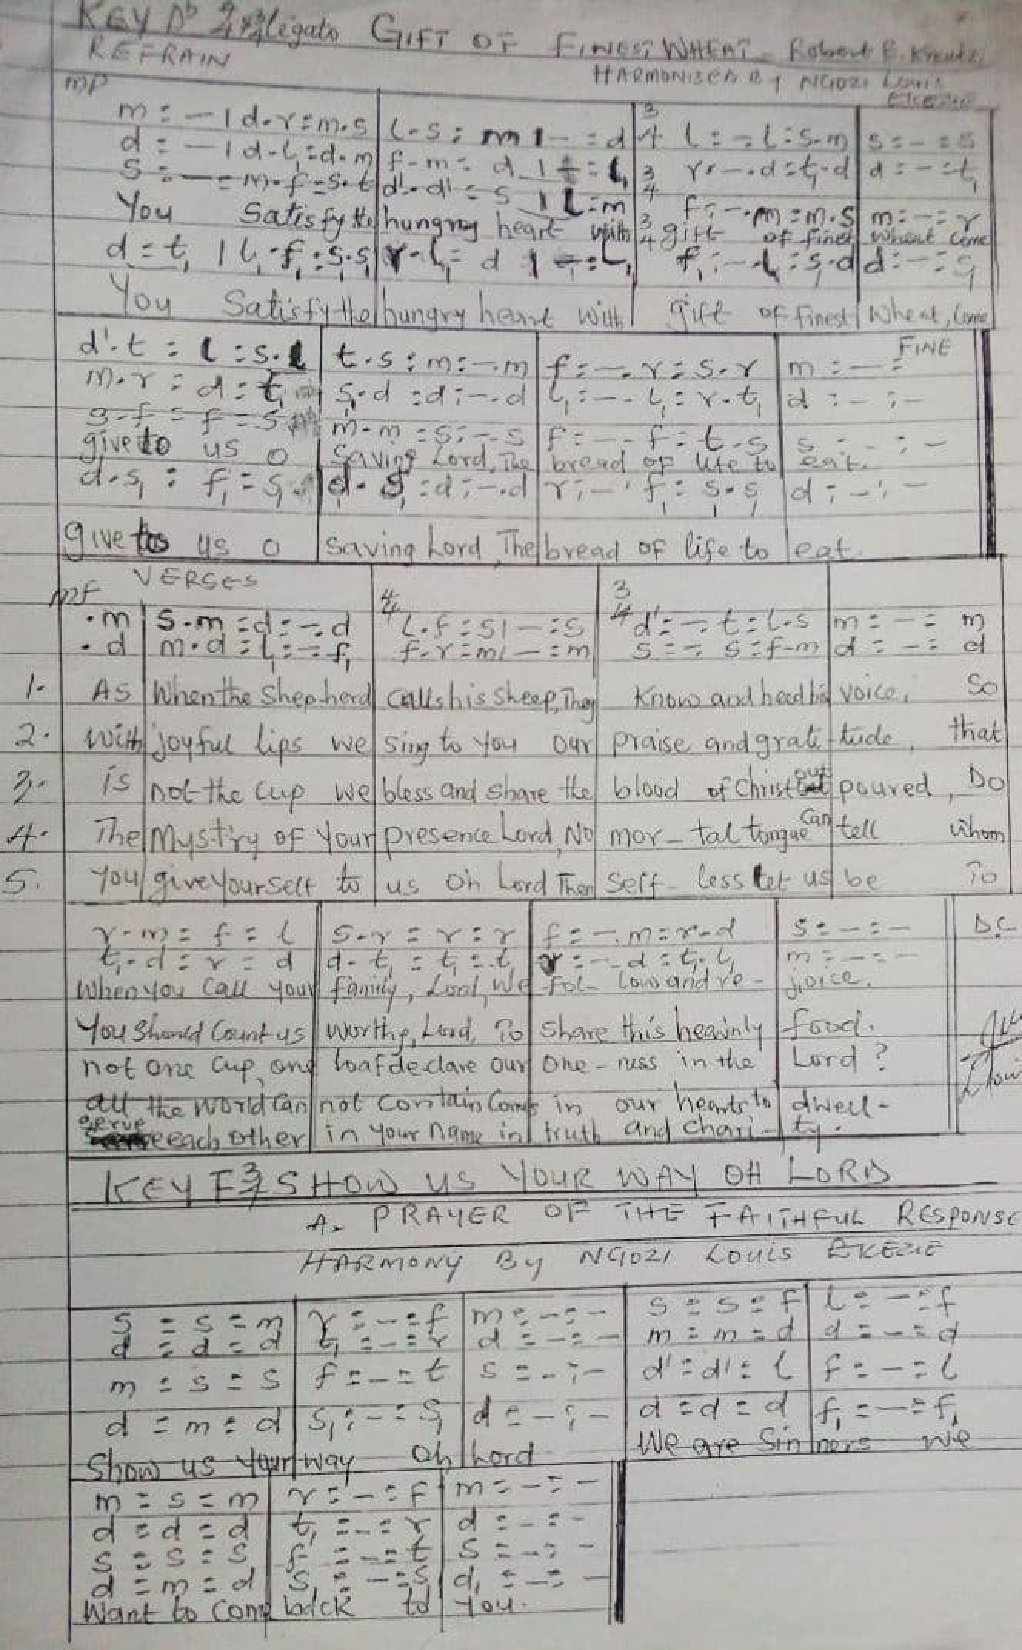 KEY Db 2/4 3/4 legato GIFT OF FINEST WHEAT - Robert E. Kreutz
REFRAIN HARMONISED By NGOZI Louis
mp EKEZIE
m : - | d.r : m.s | l.s : m | - : d | 3/4 l : - . l : s.m | s : - : s
d : - | d.l, : d.m | f.m : d | t : l, | 3/4 r : - . d : t,.d | d : - : t,
s : - : m.f : s.t | d'.d' : s | l : m | 3/4 f : - . m : m.s | m : - : r
You Satisfy the hungry heart with gift of finest wheat come
d : t, | l,.f, : s,.s, | r.l, : d | - : l, | 3/4 f, : - . l, : s,.d | d : - : s,
You Satisfy the hungry heart with gift of finest Wheat, Come
d'.t : l : s.l | t.s : m : - . m | f : - . r : s.r | m : - : FINE
m.r : d : t, | s,.d : d : - . d | l, : - . l, : r.t, | d : - : -
s.f : f : s | m.m : s : - . s | f : - - f : t.s | s : - : -
give to us O Saving Lord, The bread of life to eat.
d.s, : f, : s, | d.s, : d : - . d | r : - ' f, : s,.s, | d : - : -
give to us O Saving Lord, The bread of life to eat
VERSES
mf 4/4 3/4
.m | s.m : d : - . d | l.f : s | - : s | d' : - . t : l.s | m : - : m
.d | m.d : l, : - : f, | f.r : m | - : m | s : - . s : f-m | d : - : d
1. As When the Shepherd calls his sheep, They Know and heed his voice, So
2. With joyful lips we sing to you our praise and grati-tude, that
3. is not the cup we bless and share the blood of Christ out poured, Do
4. The Mystry of Your presence Lord, No mor-tal tongue can tell Whom
5. You give yourself to us Oh Lord Then Self-less let us be To
r-m : f : l | s-r : r : r | f : - . m : r-d | s : - : - | D.C
t,.d : r : d | d-t, : t, : t | r : - . d : t,.l, | m : - : -
When you Call your family, Lord, We fol-low and re-joice.
You Should Count us worthy, Lord, To share this heavinly food.
not one cup, and loaf declare our one-ness in the Lord?
all the World can not contain Come in our hearts to dwell-
serve each other in your name in truth and chari-ty.
KEY F 3/4 SHOW US YOUR WAY OH LORD
A- PRAYER OF THE FAITHFUL RESPONSE
HARMONY By NGOZI LOUIS EKEZIE
s : s : m | r : - : f | m : - : - | s : s : f | l : - : f
d : d : d | t, : - : r | d : - : - | m : m : d | d : - : d
m : s : s | f : - : t | s : - : - | d' : d' : l | f : - : l
d : m : d | s, : - : s, | d : - : - | d : d : d | f, : - : f,
Show us your way Oh Lord We are Sin ners We
m : s : m | r : - : f | m : - : -
d : d : d | t, : - : r | d : - : -
s : s : s | f : - : t | s : - : -
d : m : d | s, : - : s, | d, : - : -
Want to come back to You.